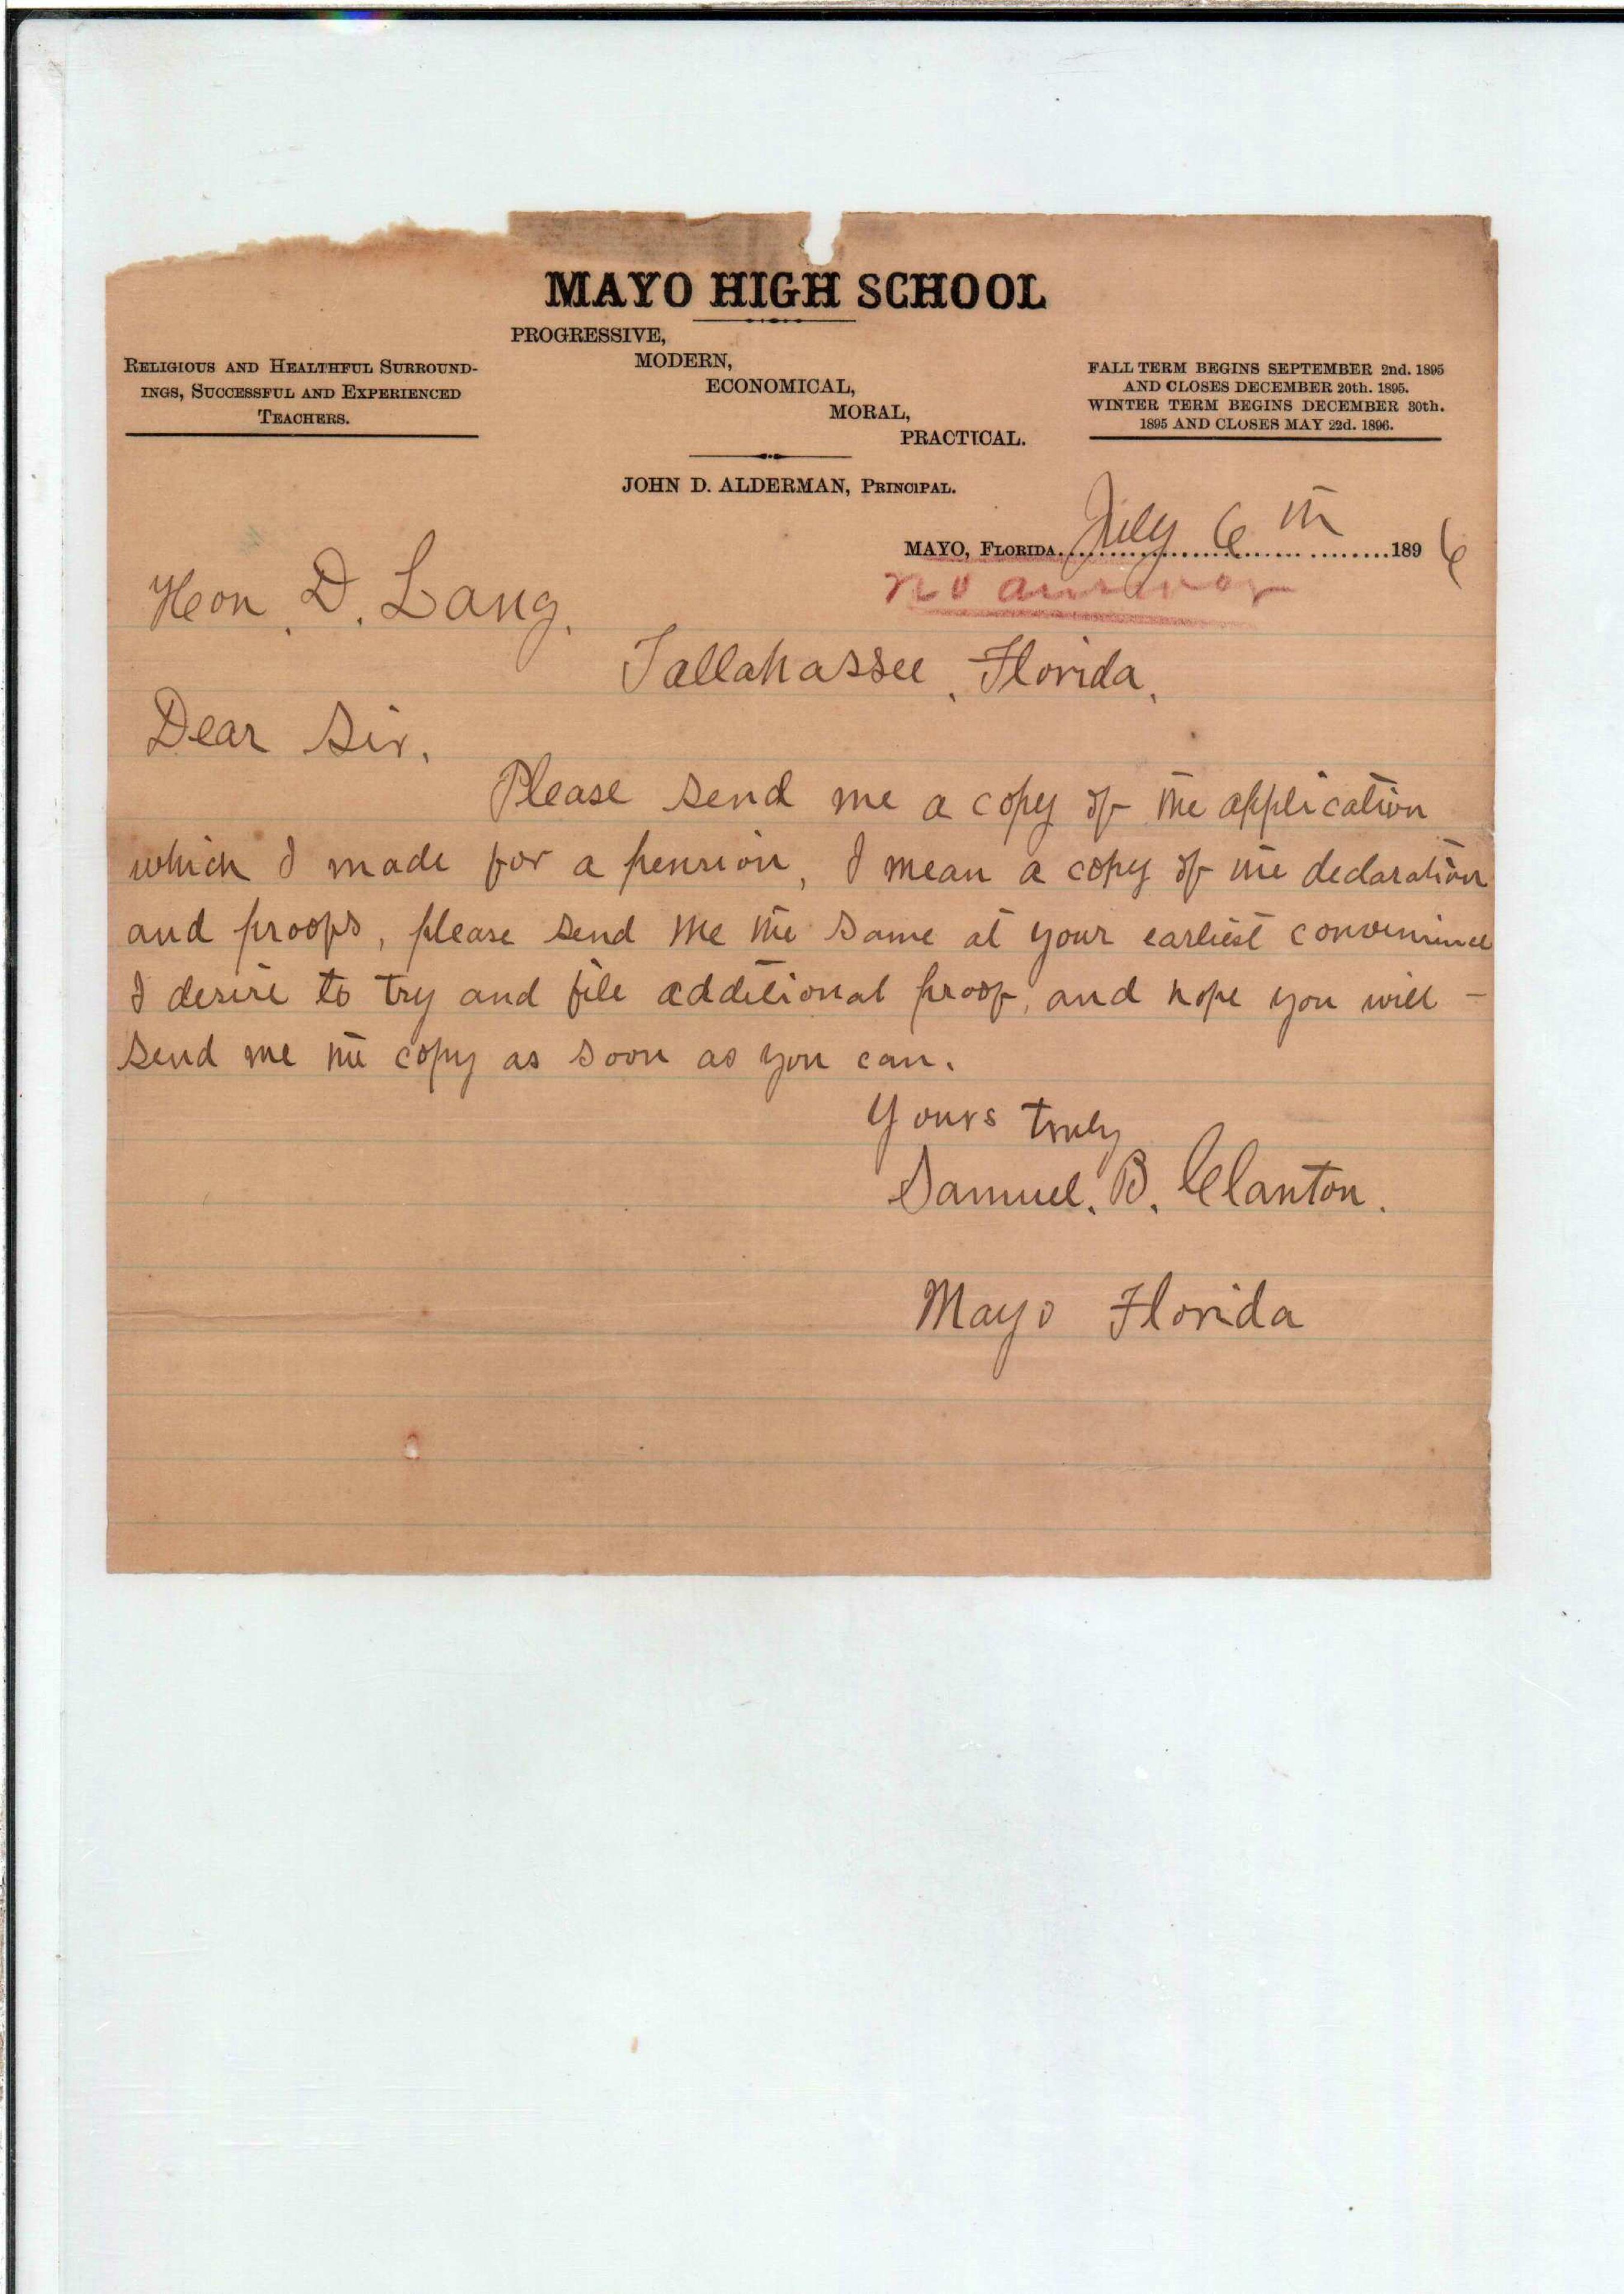 MAYO HIGH SCHOOL
PROGRESSIVE,
MODERN,
ECONOMICAL,
MORAL,
PRACTICAL.
RELIGIOUS AND HEALTHFUL SURROUND-
INGS, SUCCESSFUL AND EXPERIENCED
TEACHERS.
FALL TERM BEGINS SEPTEMBER 2nd. 1895
AND CLOSES DECEMBER 20th. 1895.
WINTER TERM BEGINS DECEMBER 30th.
1895 AND CLOSES MAY 22d. 1896.
JOHN D. ALDERMAN, PRINCIPAL.
MAYO, FLORIDA. July 6th 1896
no answer
Hon. D. Lang.
Tallahassee, Florida,
Dear Sir.
Please send me a copy of the application
which I made for a pension, I mean a copy of the declaration
and proofs, please send me the same at your earliest convenience
I desire to try and file additional proof, and hope you will -
send me the copy as soon as you can.
Yours truly
Samuel. B. Clanton.
Mayo Florida